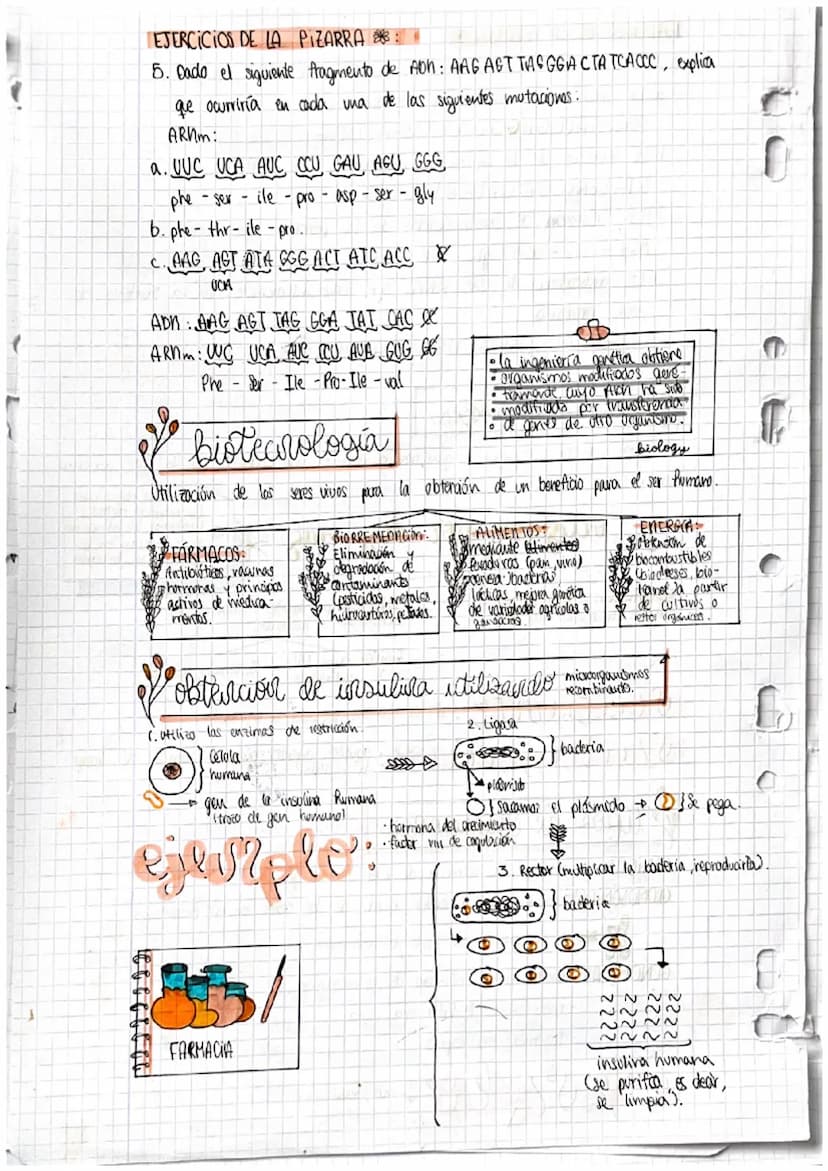 EJERCICIOS DE LA PIZARRA :
5. Dado el siguiente fragmento de ADN: AAG AGT TAG GGA CTA TCA CCC, explica
que ocurriría en cada una de las siguientes mutaciones:
ARNm:
a. UUC UCA AUC CCU GAU AGU GGG
phe - ser - ile - pro - asp - ser - gly
b. phe - thr - ile - pro.
c. AAG AGT ATA GGG ACT ATC ACC
UCA
ADN: AAG AGT TAG GGA TAT CAC CC
ARNm: UUC UCA AUC CCU AUA GUG GG
Phe - Ser - Ile - Pro - Ile - val
• la ingeniería genética obtiene
• organismos modificados gené-
• ticamente, cuyo ADN ha sido
• modificado por transferencia
• de genes de otro organismo.
biology
biotecnología
Utilización de los seres vivos para la obtención de un beneficio para el ser humano.
FÁRMACOS:
Antibióticos, vacunas
hormonas y principios
activos de medica-
mentos.
BIORREMEDIACIÓN:
Eliminación y
degradación de
contaminants
(pesticidas, metales,
hidrocarburos, petróleo.
ALIMENTOS:
mediante (alimentos)
levaduras (pan, vino)
bacterias
lácticas, mejora genética
de variedades agrícolas o
ganaderas.
ENERGÍA:
Obtención de
biocombustibles
(biodiésel, bio-
tanol) a partir
de cultivos o
restos orgánicos.
obtención de insulina utilizando microorganismos
recombinado.
1. utilizo las enzimas de restricción.
2. Ligasa
Célula
humana
bacteria
plásmido
gen de la insulina humana
(trozo de gen humano)
Sacamos el plásmido → Se pega.
ejemplo:
• hormona del crecimiento
• factor VIII de coagulación
3. Rector (multiplicar la bacteria, reproducirla).
bacteria
FARMACIA
insulina humana
(se purifica, es decir,
se limpia).